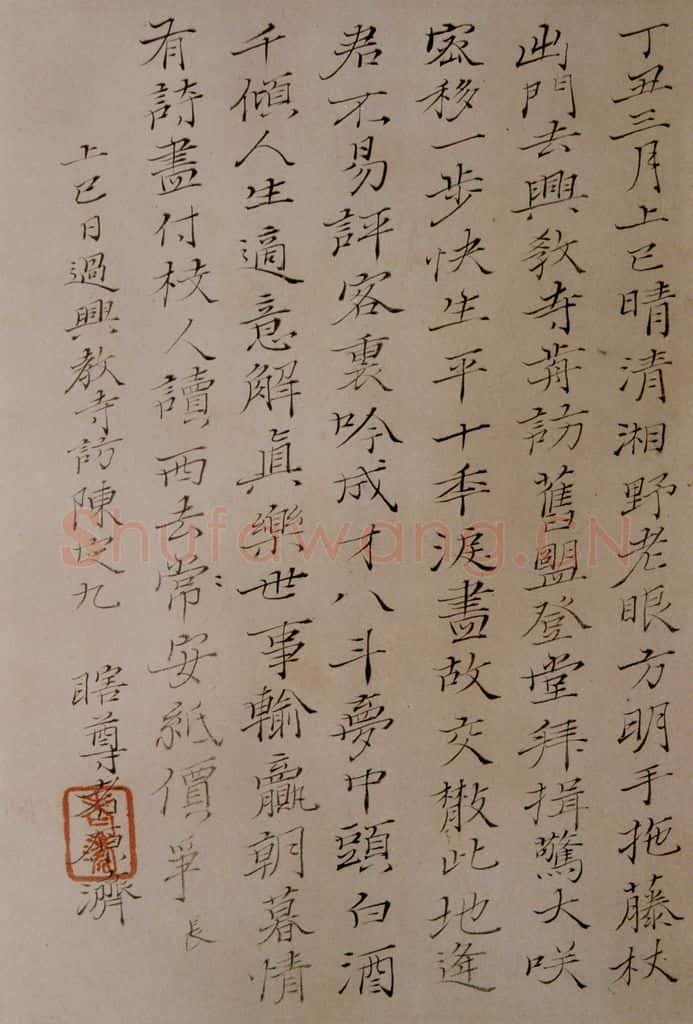 丁丑三月上巳晴清湘野老眼方明手拖藤杖
出門去興教寺前訪舊盟登堂拜揖驚大咲
密移一步快生平十年淚盡故交散此地逢
君不易評客裏吟成才八斗夢中頭白酒
千傾人生適意解真樂世事輸贏朝暮情
有詩盡付校人讀西去常安紙價爭
長
上巳日過興教寺訪陳定九 瞎尊者原濟
Shufawang.CN